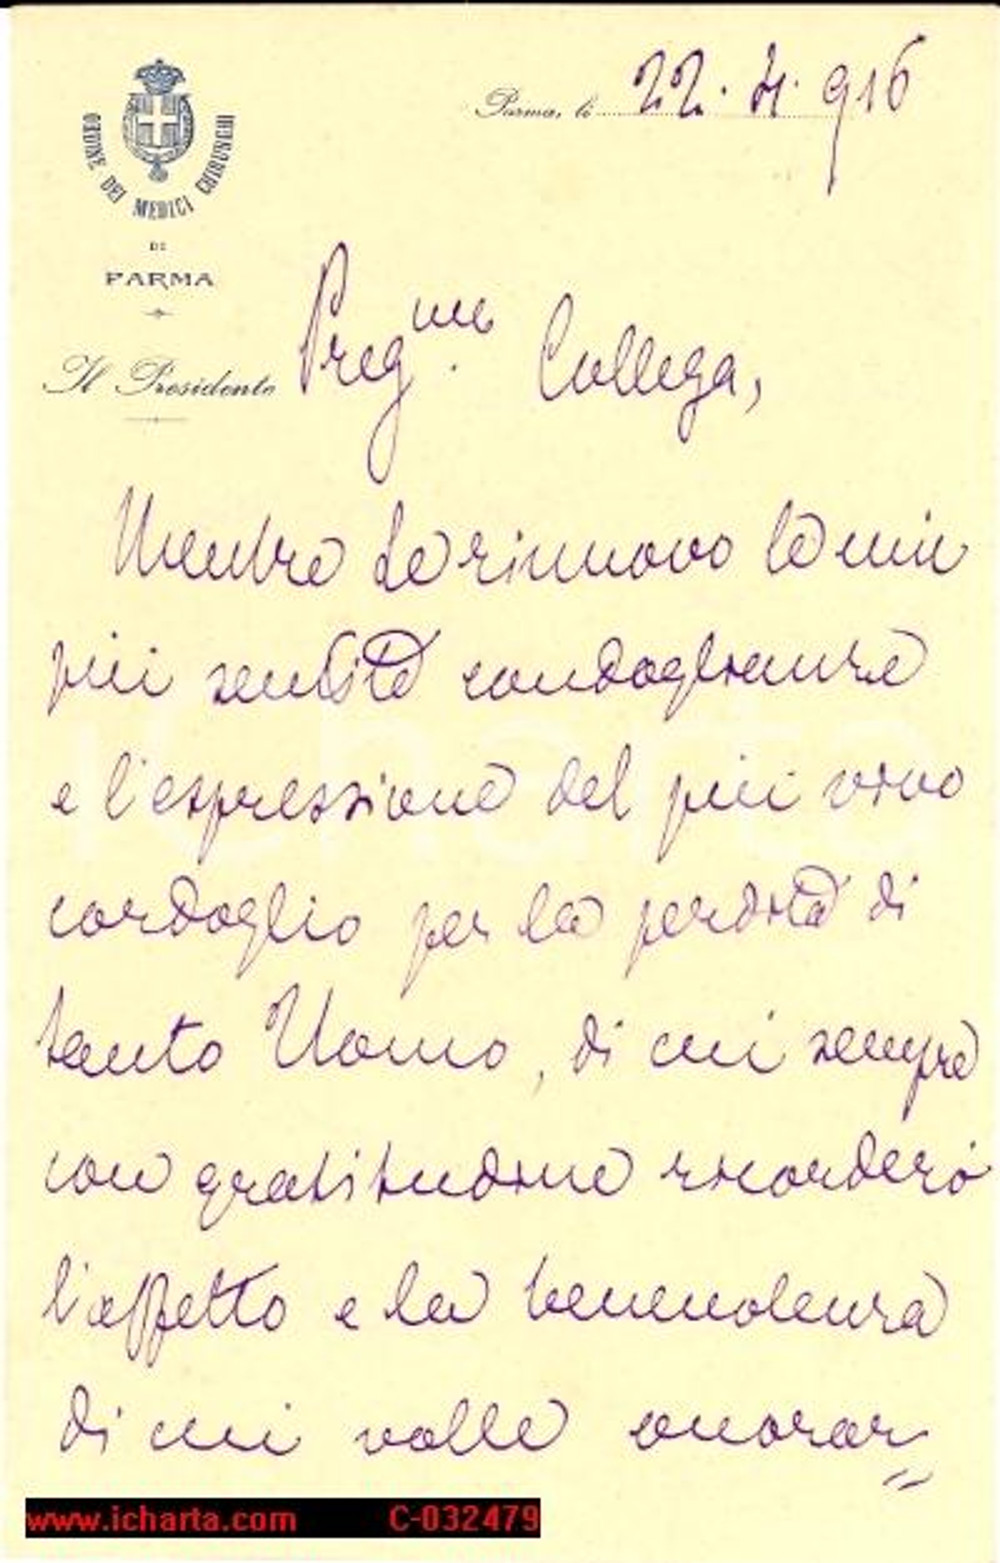 ORDINE DEI MEDICI CHIRURGHI
DI
PARMA
Il Presidente
Parma, li 22. XI. 916
Preg.me Collega,
Mentre Le rinnovo le mie
più sentite condoglianze
e l'espressione del più vivo
cordoglio per la perdita di
tanto Uomo, di cui sempre
con gratitudine ricorderò
l'affetto e la benevolenza
di cui volle onorar=
icharta
www.icharta.com C-032479